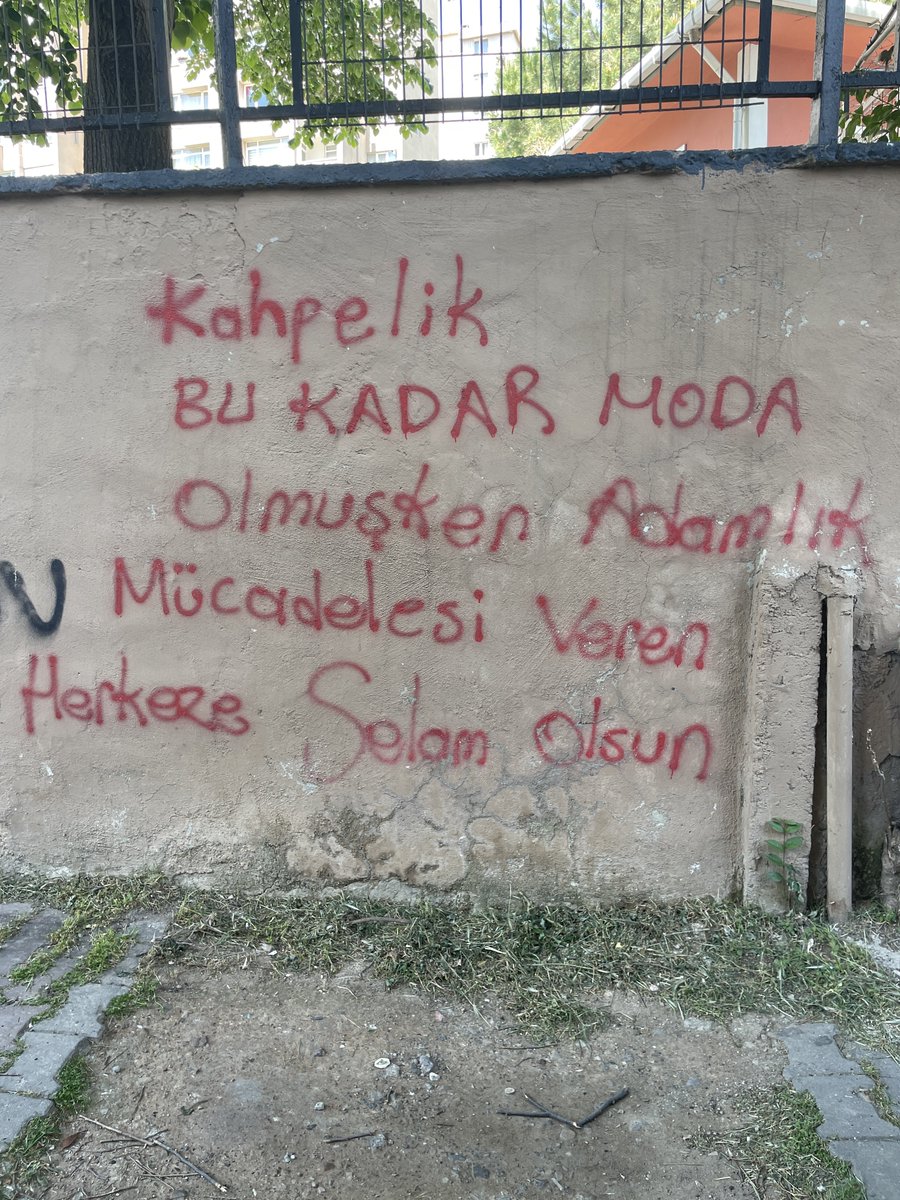 Kahpelik
BU KADAR MODA
Olmuşken Adamlık
Mücadelesi Veren
Herkeze Selam Olsun